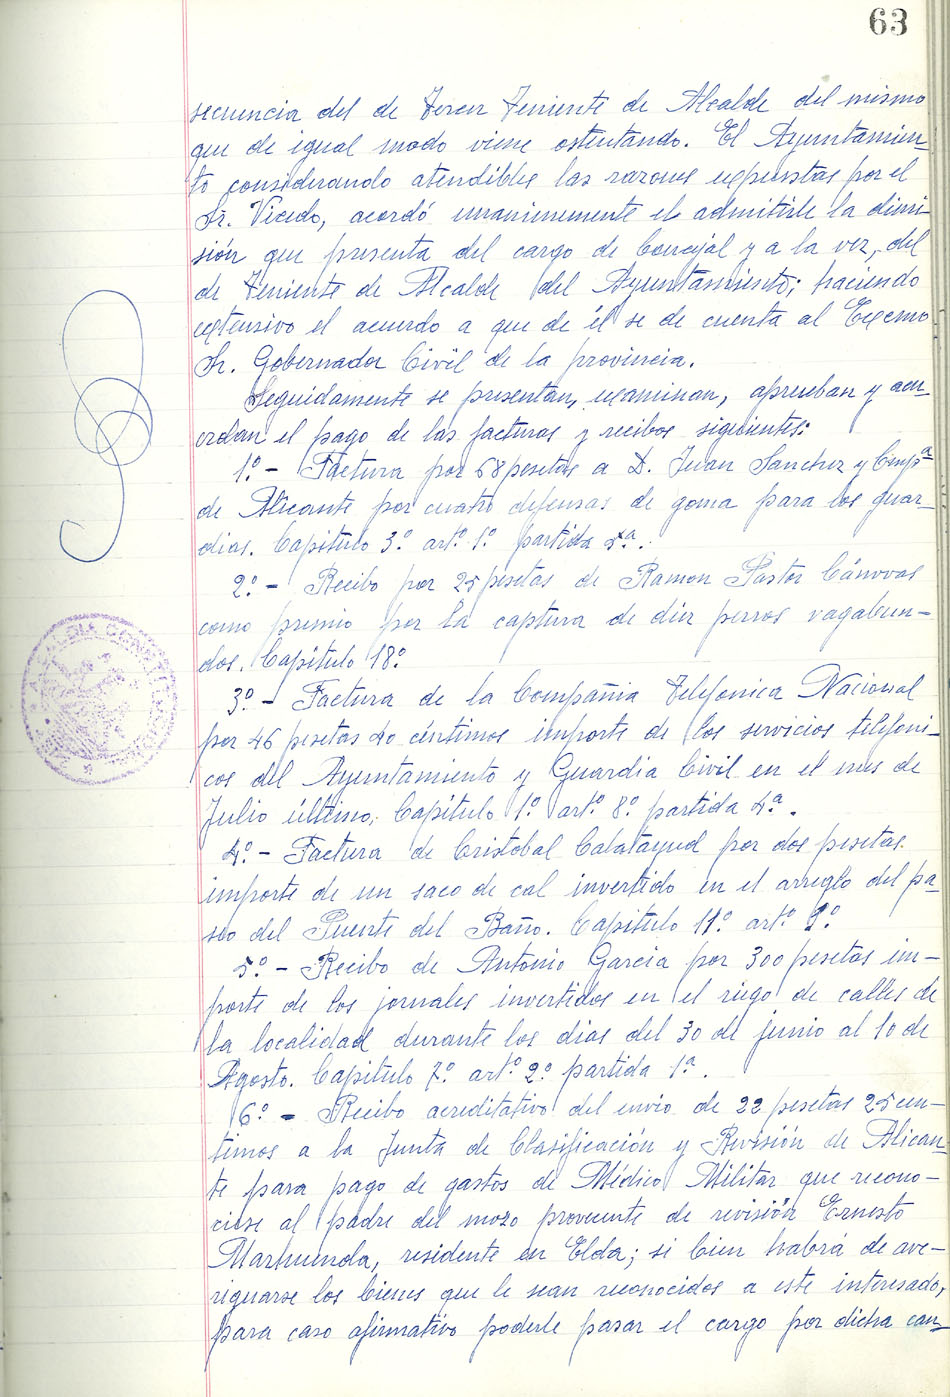 63
secuencia del de Tercer Teniente de Alcalde del mismo
que de igual modo viene ostentando. El Ayuntamien-
to considerando atendibles las razones expuestas por el
Sr. Vicedo, acordó unanimemente el admitirle la dimi-
sión que presenta del cargo de Concejal y a la vez, del
de Teniente de Alcalde del Ayuntamiento; haciendo
extensivo el acuerdo a que de él se de cuenta al Excmo
Sr. Gobernador Civil de la provincia.
Seguidamente se presentan, examinan, aprueban y acu-
erdan el pago de las facturas y recibos siguientes:
1º.- Factura por 68 pesetas a D. Juan Sanchez y Compª
de Alicante por cuatro defensas de goma para los guar-
dias. Capitulo 3º. artº. 1º. partida 5ª.
2º.- Recibo por 25 pesetas de Ramon Pastor Cánovas
como premio por la captura de diez perros vagabun-
dos. Capitulo 18º.
3º.- Factura de la Compañia Telefonica Nacional
por 46 pesetas 40 céntimos importe de los servicios telefoni-
cos del Ayuntamiento y Guardia Civil en el mes de
Julio último. Capitulo 1º. artº. 8º. partida 4ª.
4º.- Factura de Cristobal Calatayud por dos pesetas
importe de un saco de cal invertido en el arreglo del pa-
seo del Puente del Baño. Capitulo 11º. artº.
5º.- Recibo de Antonio Garcia por 300 pesetas im-
porte de los jornales invertidos en el riego de calles de
la localidad durante los dias del 30 de junio al 10 de
Agosto. Capitulo 7º. artº. 2º. partida 1ª.
6º.- Recibo acreditativo del envio de 22 pesetas 25 cen-
timos a la Junta de Clasificación y Revisión de Alican-
te para pago de gastos de Médico Militar que recono-
ciese al padre del mozo procedente de revisión Ernesto
Marhuenda, residente en Elda; si bien habrá de ave-
riguarse los bienes que le sean reconocidos a este interesado,
para caso afirmativo poderle pasar el cargo por dicha can-
ALCALDIA CONSTITUCIONAL